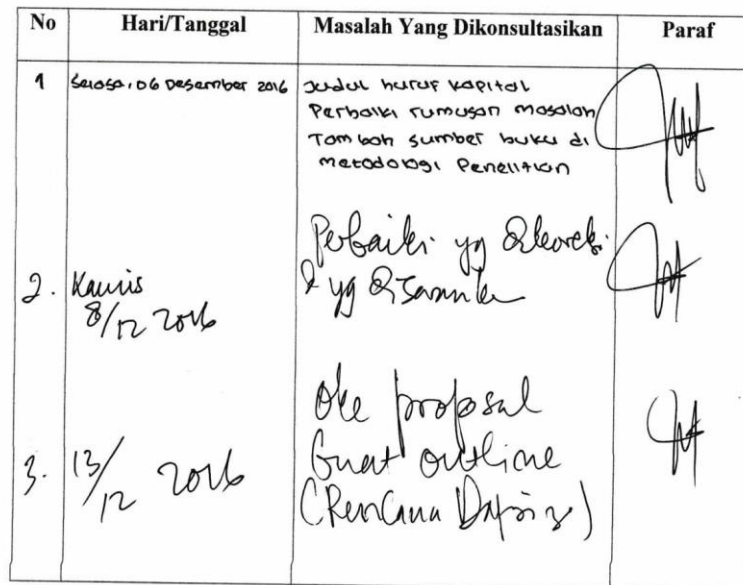 No Hari/Tanggal Masalah Yang Dikonsultasikan Paraf
1 Selasa, 06 Desember 2016 Judul huruf kapital
Perbaiki rumusan masalah
Tambah sumber buku di
metodologi Penelitian
Perbaiki yg dikoreksi
2. Kamis & yg disarankan
8/12 2016
Oke proposal
3. 13/12 2016 buat outline
(Rencana Daftar Isi)